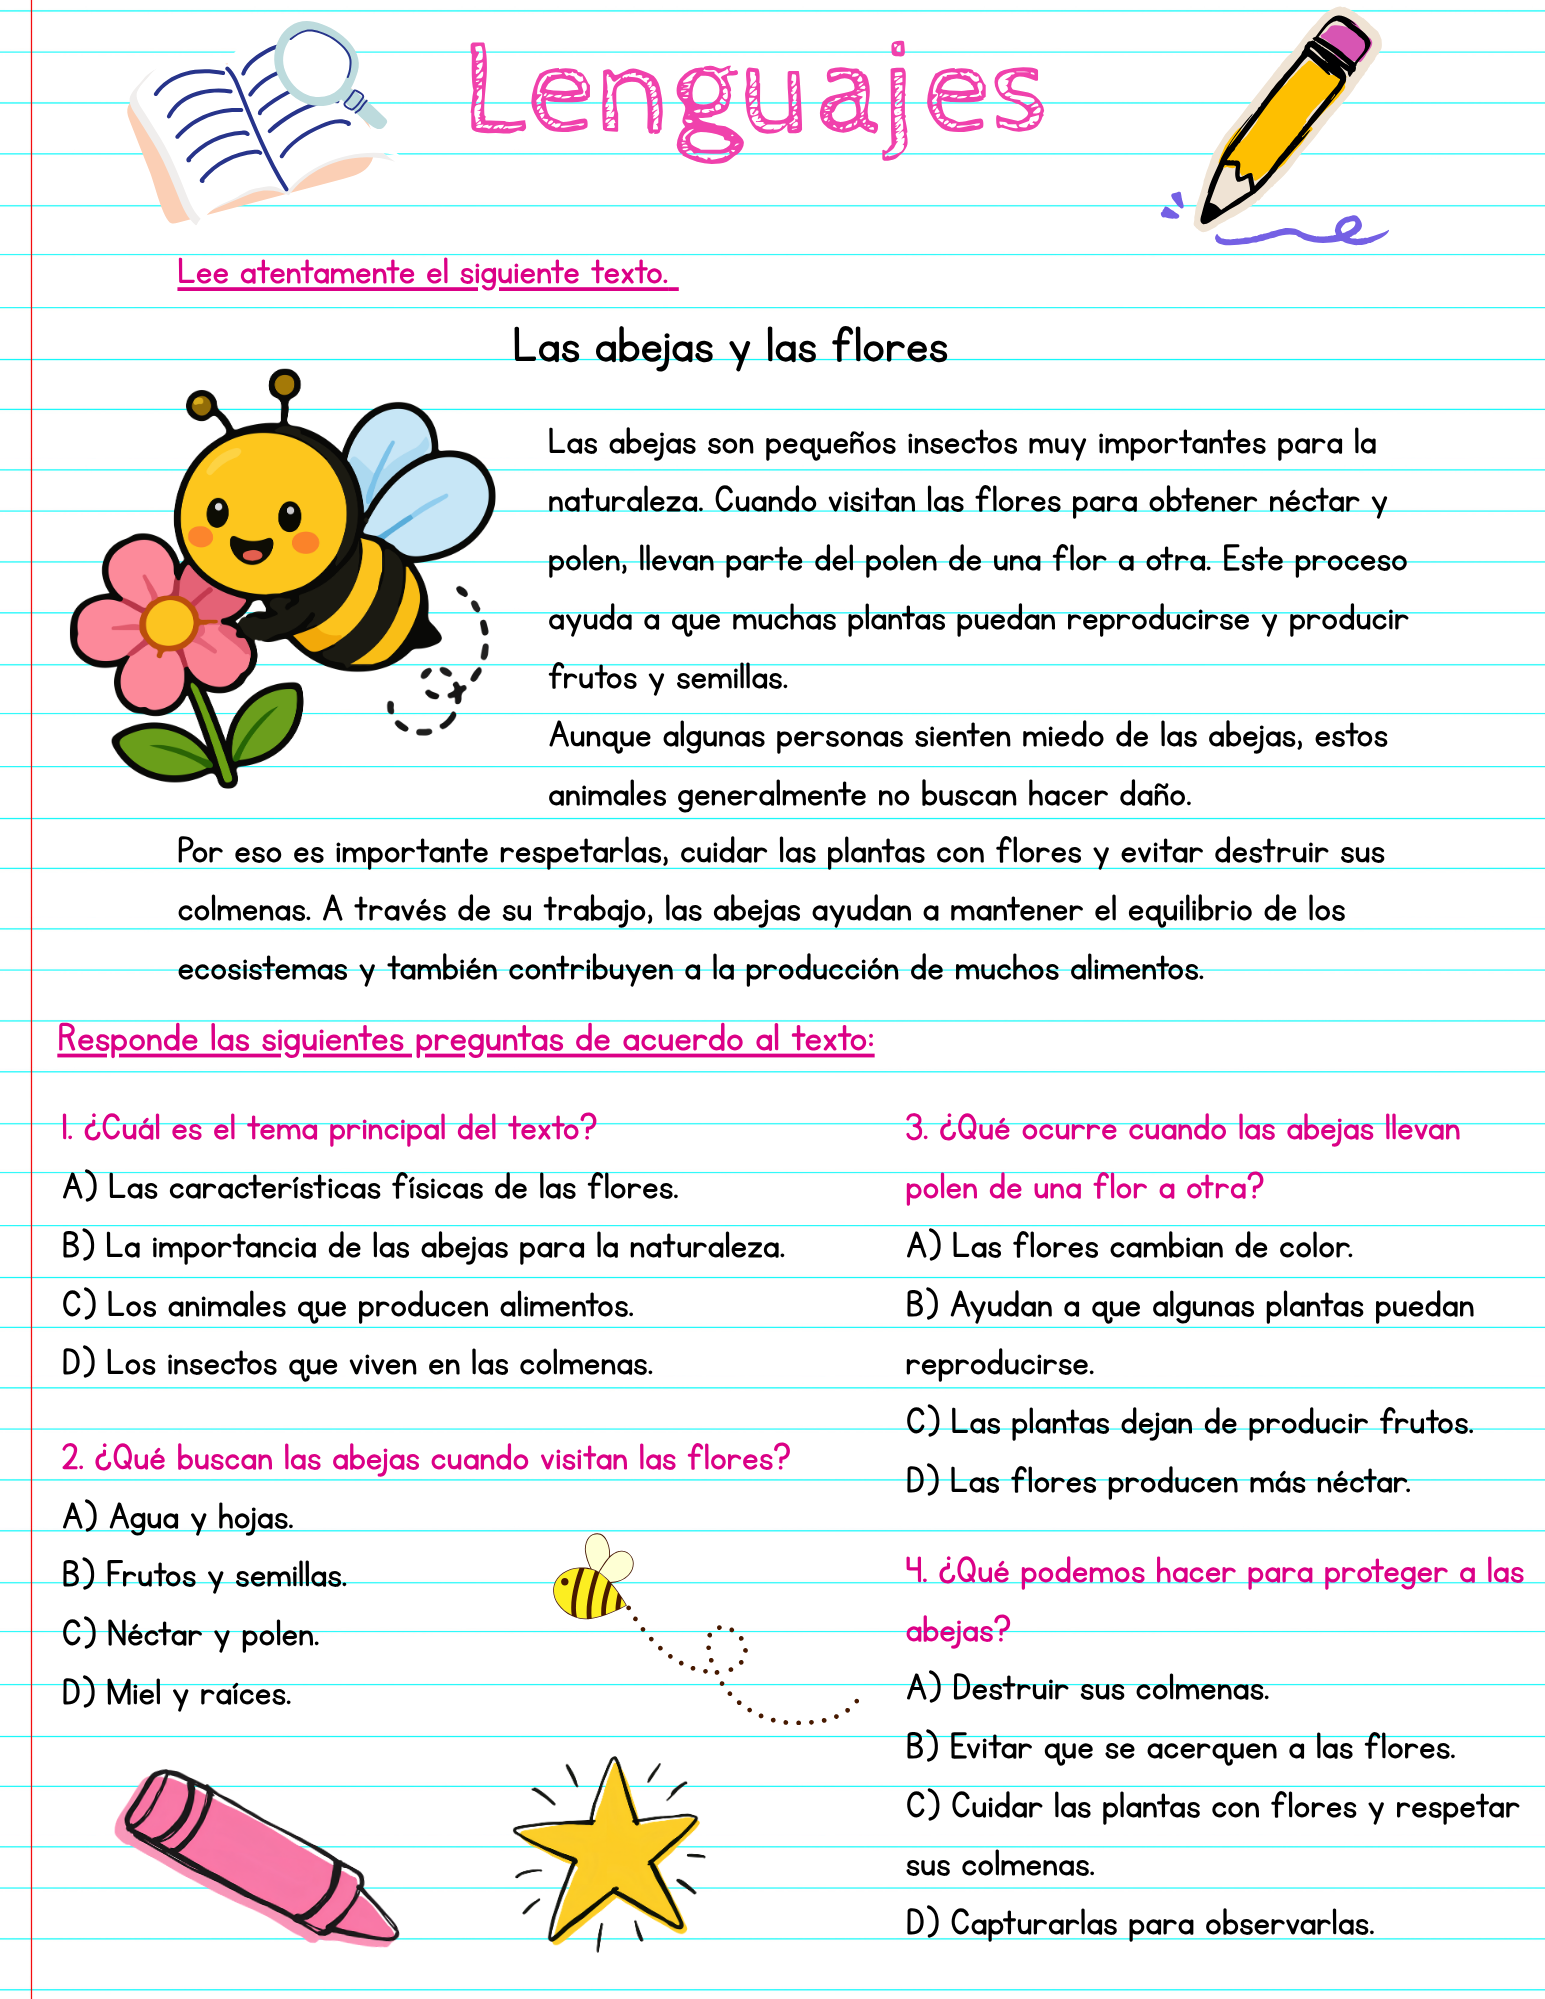 Lenguajes
Lee atentamente el siguiente texto.
Las abejas y las flores
Las abejas son pequeños insectos muy importantes para la
naturaleza. Cuando visitan las flores para obtener néctar y
polen, llevan parte del polen de una flor a otra. Este proceso
ayuda a que muchas plantas puedan reproducirse y producir
frutos y semillas.
Aunque algunas personas sienten miedo de las abejas, estos
animales generalmente no buscan hacer daño.
Por eso es importante respetarlas, cuidar las plantas con flores y evitar destruir sus
colmenas. A través de su trabajo, las abejas ayudan a mantener el equilibrio de los
ecosistemas y también contribuyen a la producción de muchos alimentos.
Responde las siguientes preguntas de acuerdo al texto:
1. ¿Cuál es el tema principal del texto?
A) Las características físicas de las flores.
B) La importancia de las abejas para la naturaleza.
C) Los animales que producen alimentos.
D) Los insectos que viven en las colmenas.
2. ¿Qué buscan las abejas cuando visitan las flores?
A) Agua y hojas.
B) Frutos y semillas.
C) Néctar y polen.
D) Miel y raíces.
3. ¿Qué ocurre cuando las abejas llevan
polen de una flor a otra?
A) Las flores cambian de color.
B) Ayudan a que algunas plantas puedan
reproducirse.
C) Las plantas dejan de producir frutos.
D) Las flores producen más néctar.
4. ¿Qué podemos hacer para proteger a las
abejas?
A) Destruir sus colmenas.
B) Evitar que se acerquen a las flores.
C) Cuidar las plantas con flores y respetar
sus colmenas.
D) Capturarlas para observarlas.